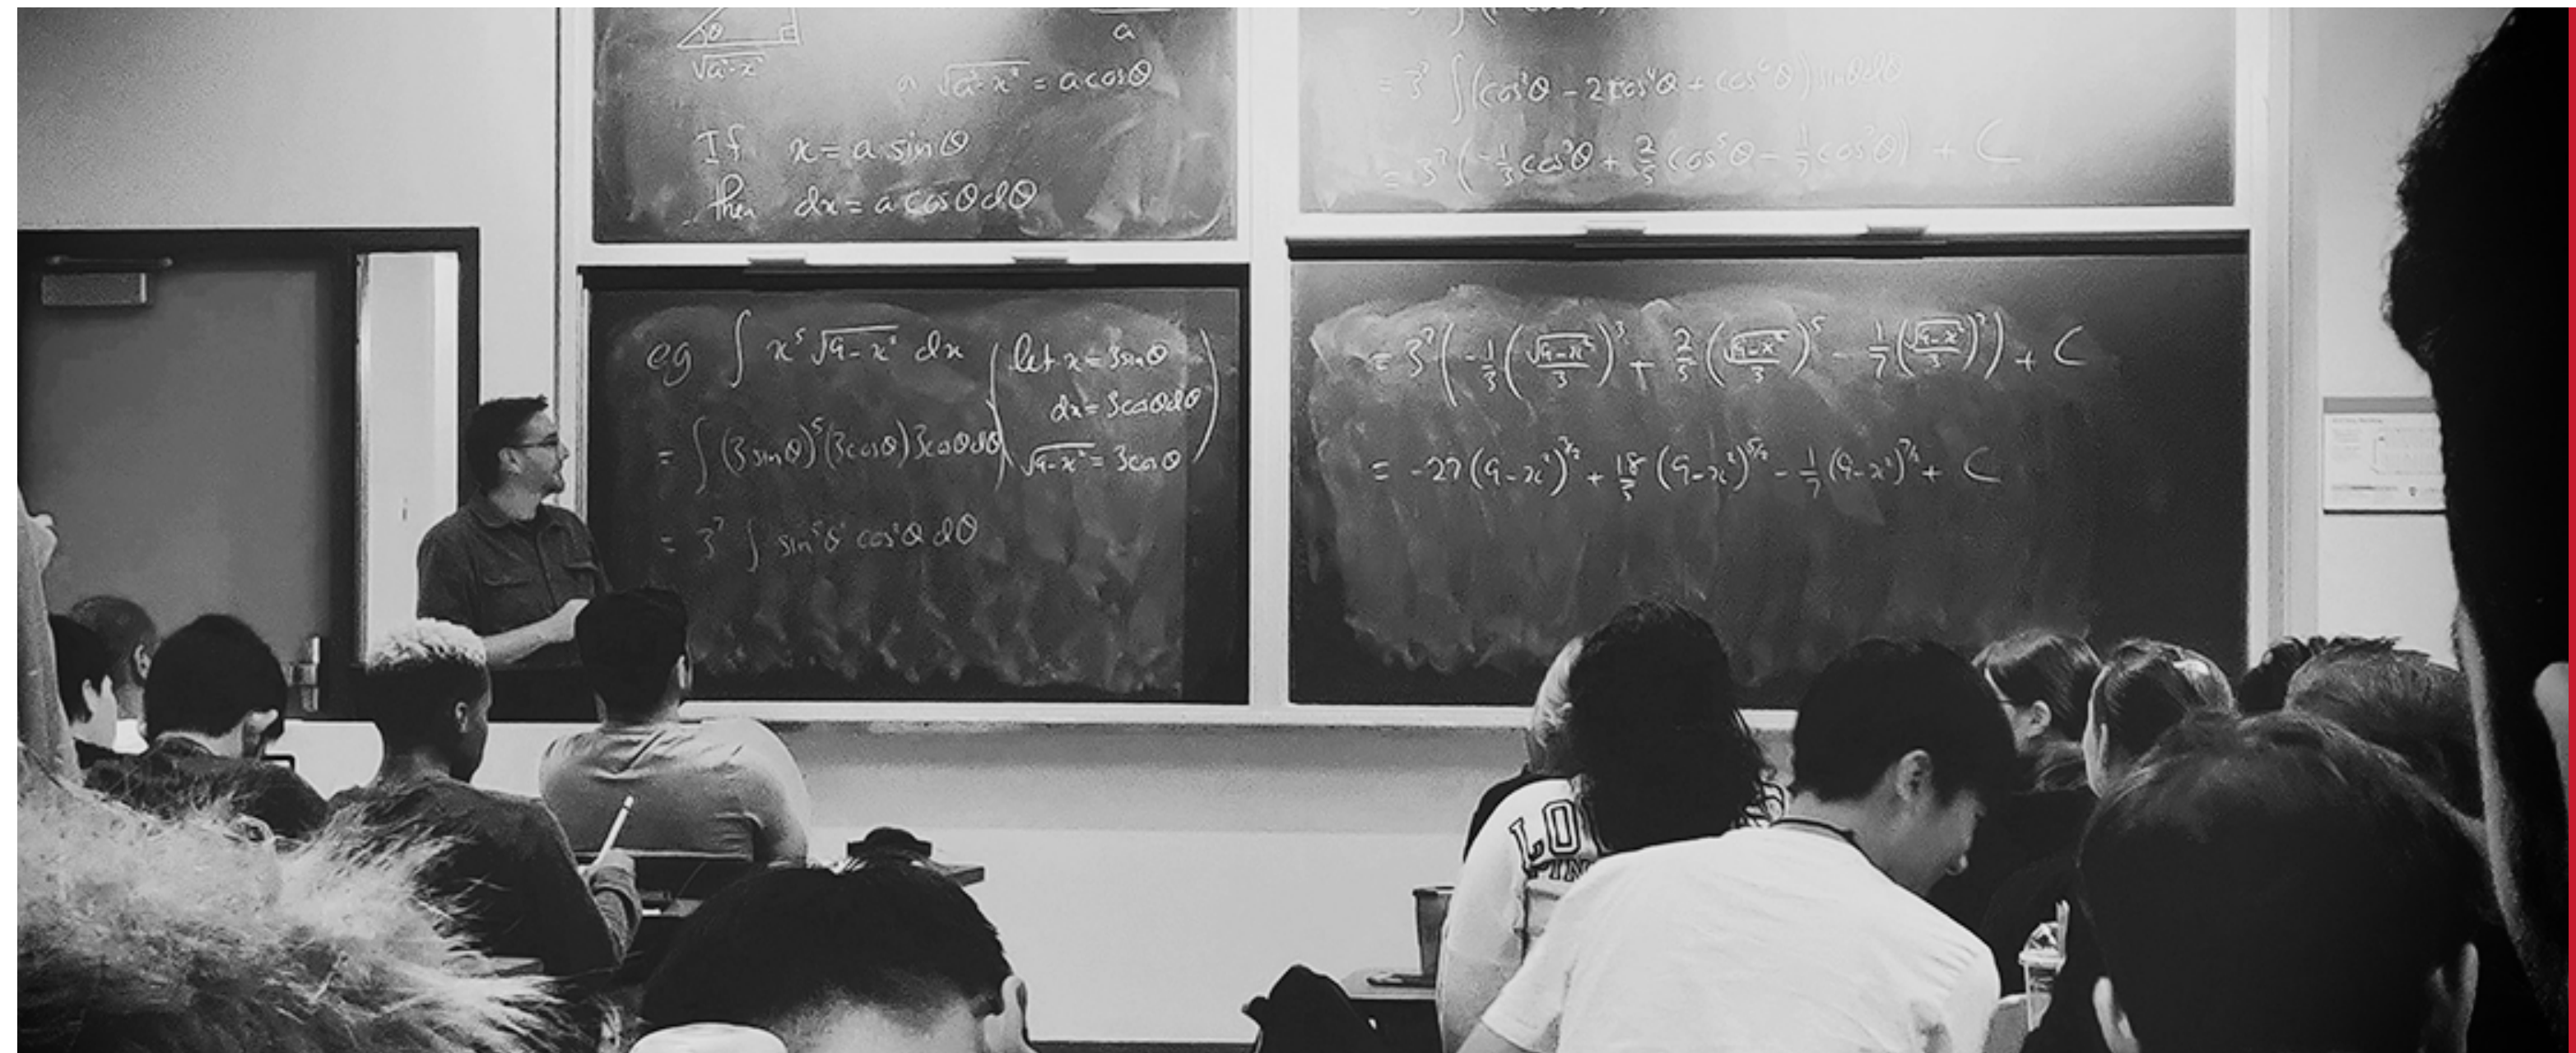 θ
√a²-x²
a
√a²-x² = a cosθ
If x = a sinθ
then dx = a cosθ dθ
eg ∫ x⁵ √9-x² dx (let x = 3sinθ
dx = 3cosθdθ
√9-x² = 3cosθ)
= ∫ (3sinθ)⁵ (3cosθ) 3cosθdθ
= 3⁷ ∫ sin⁵θ cos²θ dθ
= 3⁷ ∫ (cos²θ - 2cos⁴θ + cos⁶θ) sinθdθ
= 3⁷ (-1/3 cos³θ + 2/5 cos⁵θ - 1/7 cos⁷θ) + C
= 3⁷ (-1/3 (√9-x²/3)³ + 2/5 (√9-x²/3)⁵ - 1/7 (√9-x²/3)⁷) + C
= -27 (9-x²)^3/2 + 18/5 (9-x²)^5/2 - 1/7 (9-x²)^7/2 + C
LO